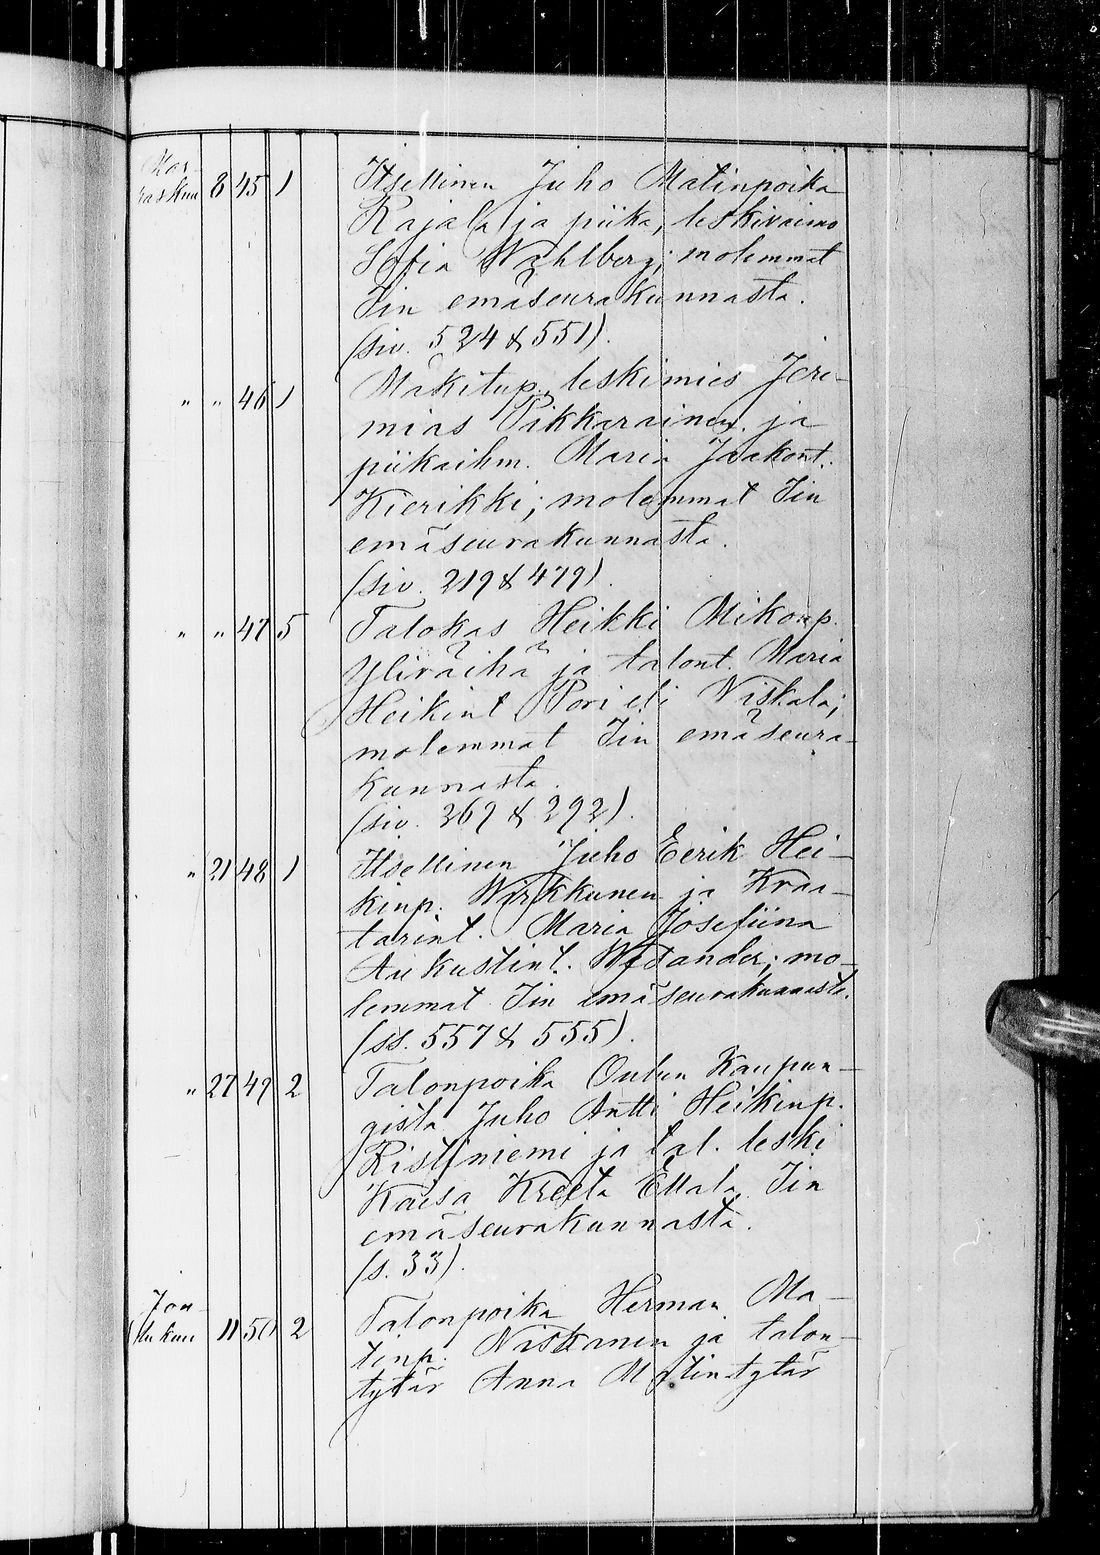 Mar-
raskuu 8 45 1 Itsellinen Juho Matinpoika
Rajala ja piika, leskivaimo
Sofia Wahlberg; molemmat
Iin emäseurakunnasta.
(siv. 524 & 551).
" " 46 1 Mäkitup. leskimies Jere-
mias Pikkarainen ja
piikaihm. Maria Jaakont.
Kierikki; molemmat Iin
emäseurakunnasta.
(siv. 219 & 479).
" " 47 5 Talokas Heikki Mikonp.
Yliräihä ja talont. Maria
Heikint Pori eli Niskala;
molemmat Iin emäseura-
kunnasta.
(siv. 269 & 292).
" 21 48 1 Itsellinen Juho Eerik Hei-
kinp. Wirkkunen ja Kraa-
tarint. Maria Josefiina
Aukustint. Widander; mo-
lemmat Iin emäseurakunnasta.
(ss. 557 & 555).
" 27 49 2 Talonpoika Oulun Kaupun-
gista Juho Antti Heikinp.
Ristiniemi ja tal. leski
Kaisa Kreeta Ellala Iin
emäseurakunnasta.
(s. 33).
Jou-
lukuu 11 50 2 Talonpoika Herman Ma-
tinp. Niskanen ja talon-
tytär Anna Matintytär